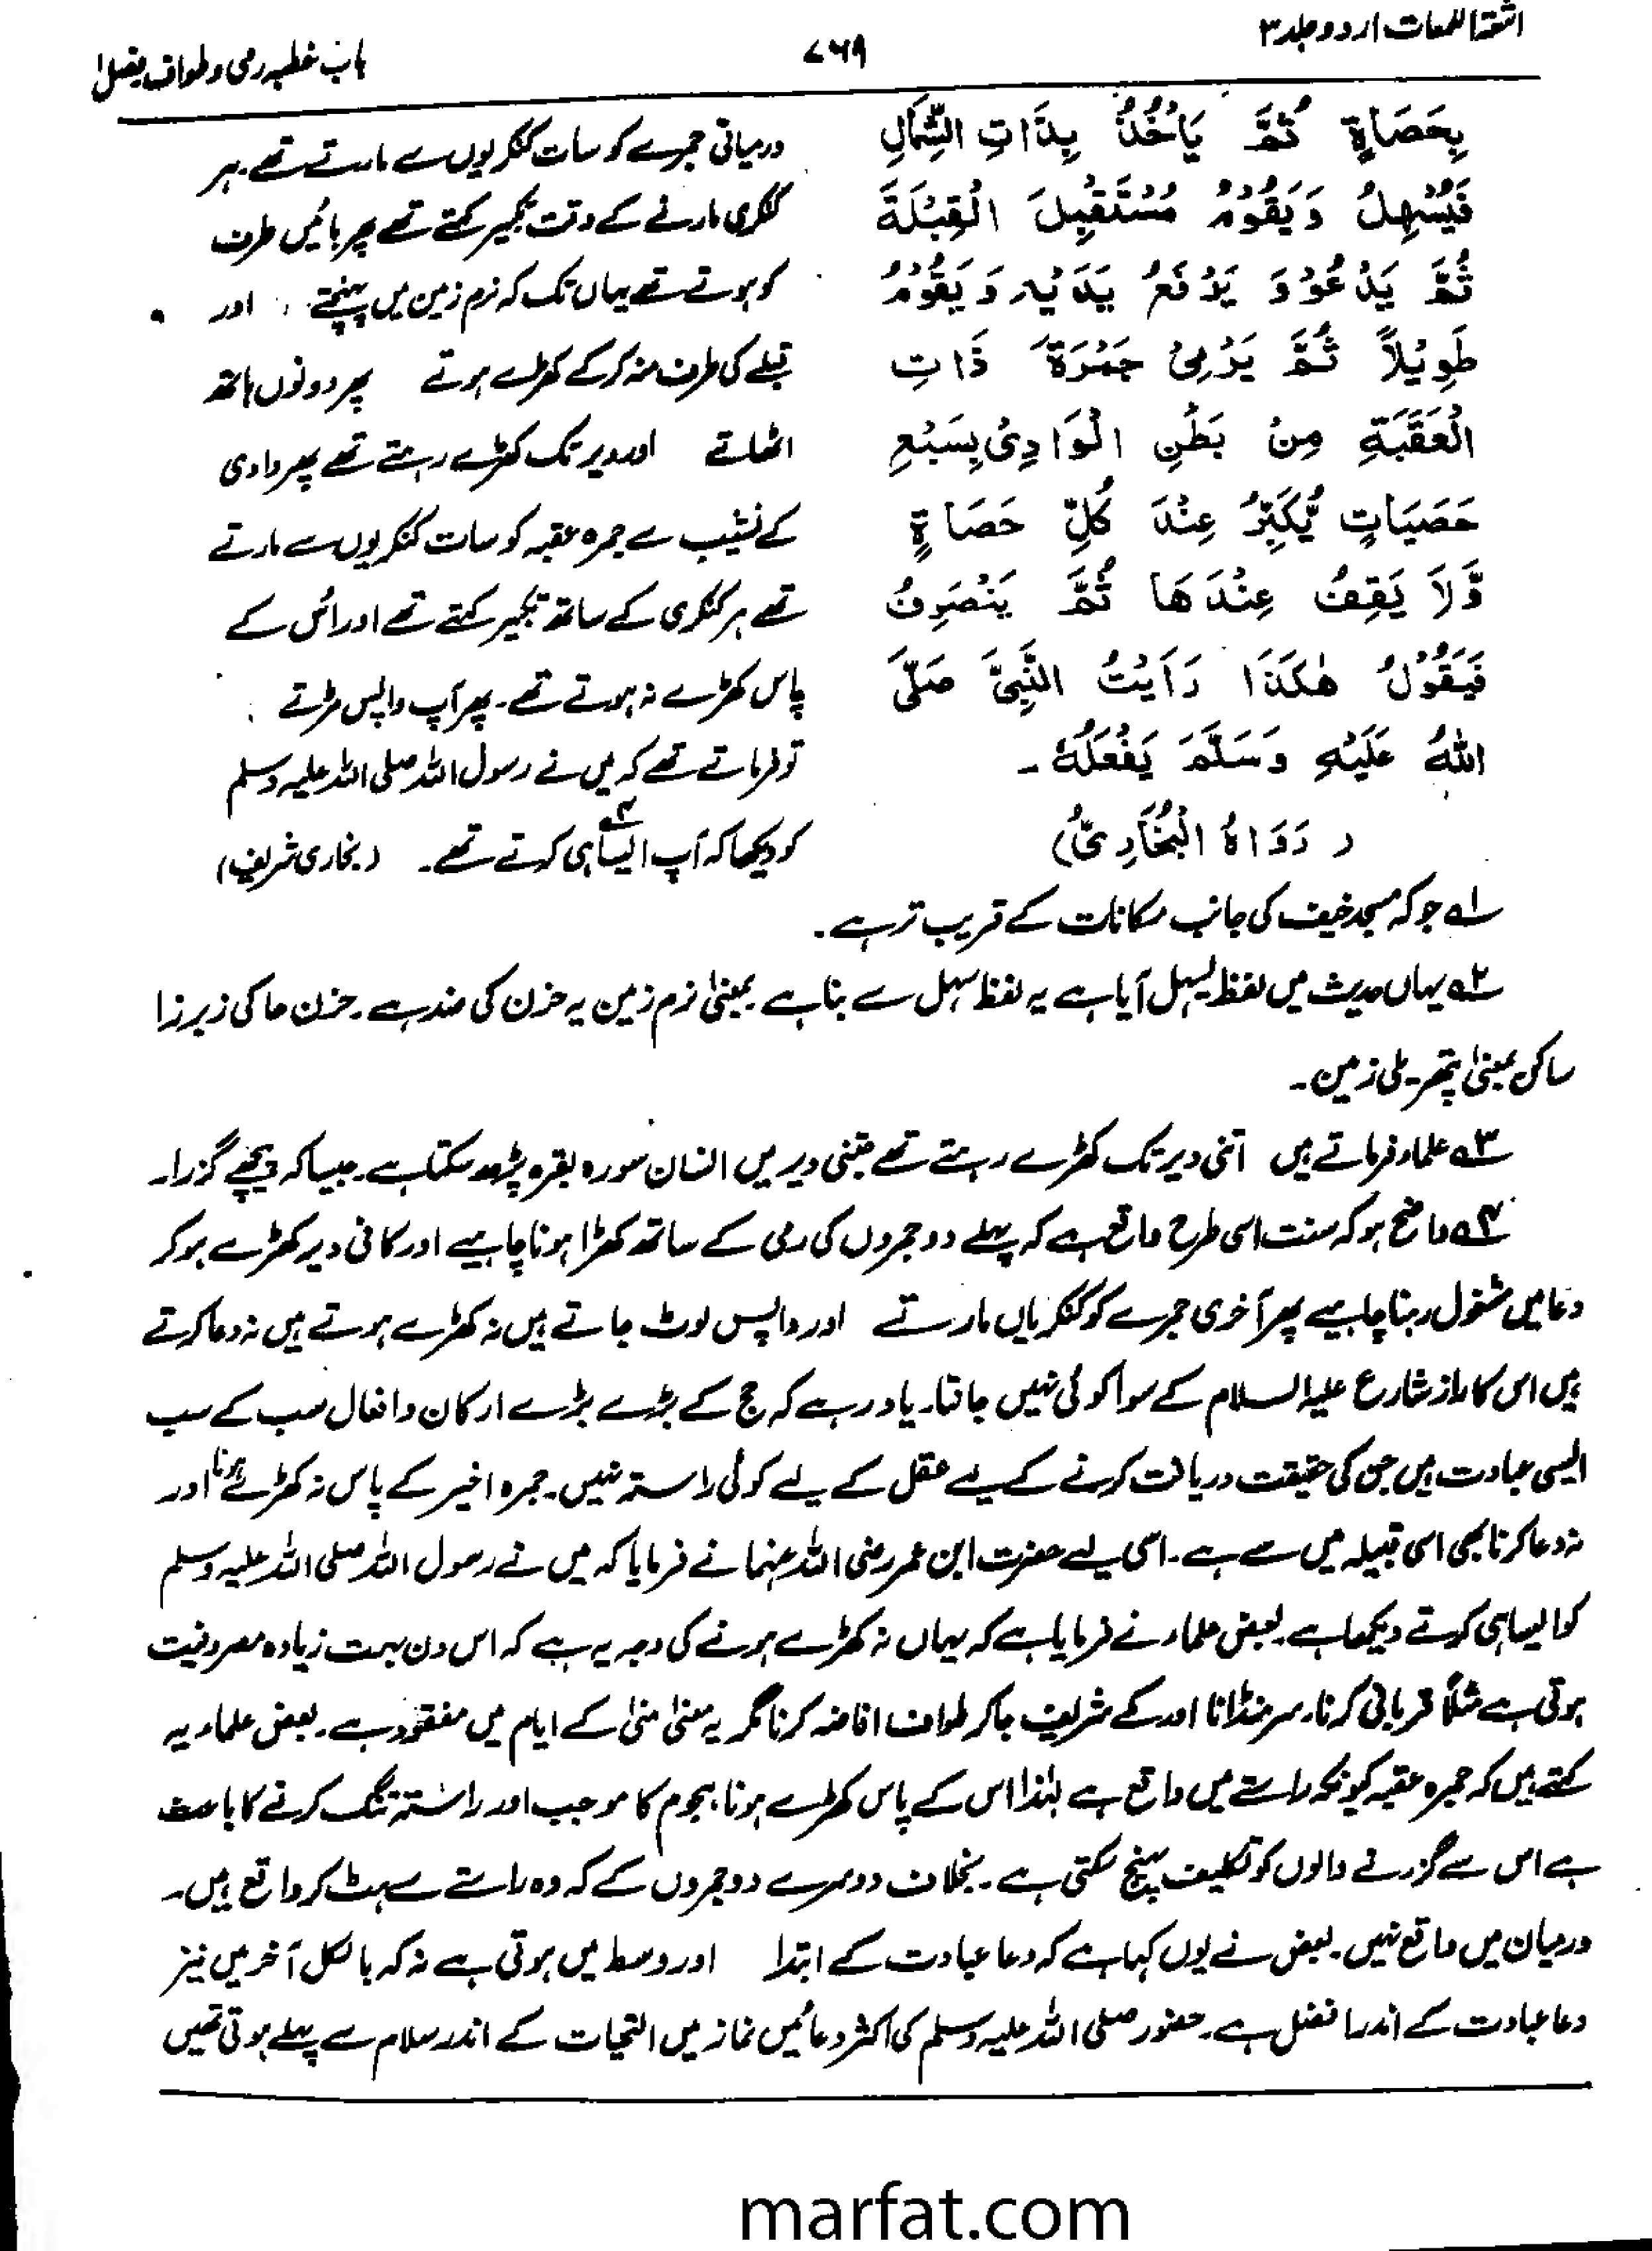 اشعۃ اللمعات اردو جلد ۳
۷۶۹
باب خطبہ رمی و طواف فصل ۱
بِحَصَاةٍ ثُمَّ يَأْخُذُ بِذَاتِ الشِّمَالِ
فَيُسْهِلُ وَيَقُوْمُ مُسْتَقْبِلَ الْقِبْلَةَ
ثُمَّ يَدْعُوْ وَ يَرْفَعُ يَدَيْهِ وَيَقُوْمُ
طَوِيْلاً ثُمَّ يَرْمِيْ جَمْرَةَ ذَاتِ
الْعَقَبَةِ مِنْ بَطْنِ الْوَادِيْ بِسَبْعِ
حَصَيَاتٍ يُّكَبِّرُ عِنْدَ كُلِّ حَصَاةٍ
وَّلَا يَقِفُ عِنْدَهَا ثُمَّ يَنْصَرِفُ
فَيَقُوْلُ هٰكَذَا رَاَيْتُ النَّبِيَّ صَلَّى
اللهُ عَلَيْهِ وَسَلَّمَ يَفْعَلُهٗ۔
(رَوَاهُ الْبُخَارِيُّ)
درمیانی جمرے کو سات کنکریوں سے مارتے تھے۔ ہر
کنکری مارنے کے وقت تکبیر کہتے تھے پھر بائیں طرف
کو ہوتے تھے یہاں تک کہ نرم زمین میں پہنچتے، اور
قبلے کی طرف منہ کر کے کھڑے ہوتے پھر دونوں ہاتھ
اٹھاتے اور دیر تک کھڑے رہتے تھے پھر وادی
کے نشیب سے جمرہ عقبہ کو سات کنکریوں سے مارتے
تھے ہر کنکری کے ساتھ تکبیر کہتے تھے اور اُس کے
پاس کھڑے نہ ہوتے تھے۔ پھر آپ واپس مڑتے
تو فرماتے تھے کہ میں نے رسول اللہ صلی اللہ علیہ وسلم
کو دیکھا کہ آپ ایسا ہی کرتے تھے۔ ۴ (بخاری شریف)
۱؎ جو کہ مسجد خیف کی جانب مکانات کے قریب تر ہے۔
۲؎ یہاں حدیث میں لفظ یسہل آیا ہے یہ لفظ سہل سے بنا ہے بمعنیٰ نرم زمین یہ حزن کی ضد ہے۔ حزن حا کی زبر زا
ساکن بمعنیٰ پتھریلی زمین۔
۳؎ علماء فرماتے ہیں اتنی دیر تک کھڑے رہتے تھے جتنی دیر میں انسان سورہ بقرہ پڑھ سکتا ہے۔ جیسا کہ پیچھے گزرا۔
۴؎ واضح ہو کہ سنت اسی طرح واقع ہے کہ پہلے دو جمروں کی رمی کے ساتھ کھڑا ہونا چاہیے اور کافی دیر کھڑے ہو کر
دعا میں مشغول رہنا چاہیے پھر آخری جمرے کو کنکریاں مارتے اور واپس لوٹ جاتے ہیں نہ کھڑے ہوتے ہیں نہ دعا کرتے
ہیں اس کا راز شارع علیہ السلام کے سوا کوئی نہیں جانتا۔ یاد رہے کہ حج کے بڑے بڑے ارکان و افعال سب کے سب
ایسی عبادت ہیں جن کی حقیقت دریافت کرنے کے لیے عقل کے لیے کوئی راستہ نہیں۔ جمرہ اخیر کے پاس نہ کھڑے ہونا اور
نہ دعا کرنا بھی اسی قبیلہ میں سے ہے۔ اسی لیے حضرت ابن عمر رضی اللہ عنہما نے فرمایا کہ میں نے رسول اللہ صلی اللہ علیہ وسلم
کو ایسا ہی کرتے دیکھا ہے۔ بعض علماء نے فرمایا ہے کہ یہاں نہ کھڑے ہونے کی وجہ یہ ہے کہ اس دن بہت زیادہ مصروفیت
ہوتی ہے مثلاً قربانی کرنا، سر منڈانا اور مکے شریف جا کر طواف افاضہ کرنا مگر یہ معنیٰ منیٰ کے ایام میں مفقود ہے۔ بعض علماء یہ
کہتے ہیں کہ جمرہ عقبہ کیونکہ راستے میں واقع ہے لہٰذا اس کے پاس کھڑے ہونا، ہجوم کا موجب اور راستہ تنگ کرنے کا باعث
ہے اس سے گزرنے والوں کو تکلیف پہنچ سکتی ہے۔ بخلاف دوسرے دو جمروں کے کہ وہ راستے سے ہٹ کر واقع ہیں۔
درمیان میں واقع نہیں۔ بعض نے یوں کہا ہے کہ دعا عبادت کے ابتدا اور وسط میں ہوتی ہے نہ کہ بالکل آخر میں نیز
دعا عبادت کے اندر افضل ہے۔ حضور صلی اللہ علیہ وسلم کی اکثر دعائیں نماز میں التحیات کے اندر سلام سے پہلے ہوتی تھیں
marfat.com